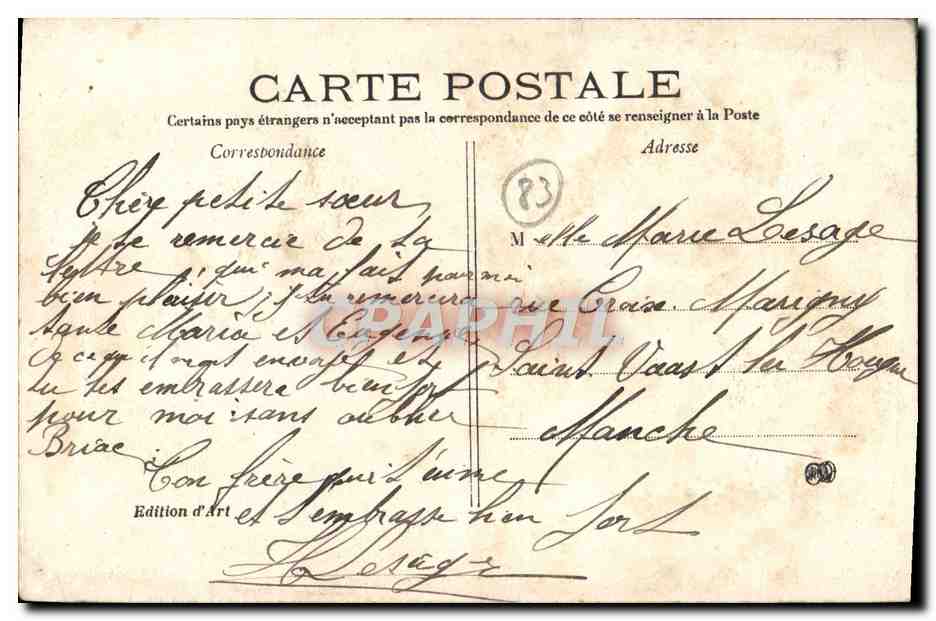 CARTE POSTALE
Certains pays étrangers n'acceptant pas la correspondance de ce côté se renseigner à la Poste
Correspondance
Adresse
83
Chère petite sœur
je te remercie de ta
lettre qui ma fait
bien plaisir, remercira
tante Maria et Eugenie
de ce qu'il mont envoyer et
tu les embrassera bien fort
pour moi sans oublier
Briac
Ton frère qui t'aime
et t'embrasse bien fort
Lesage
M elle Marie Lesage
rue Croix Marigny
Saint Vaast la Hougue
Manche
Edition d'Art
CPAPHIL